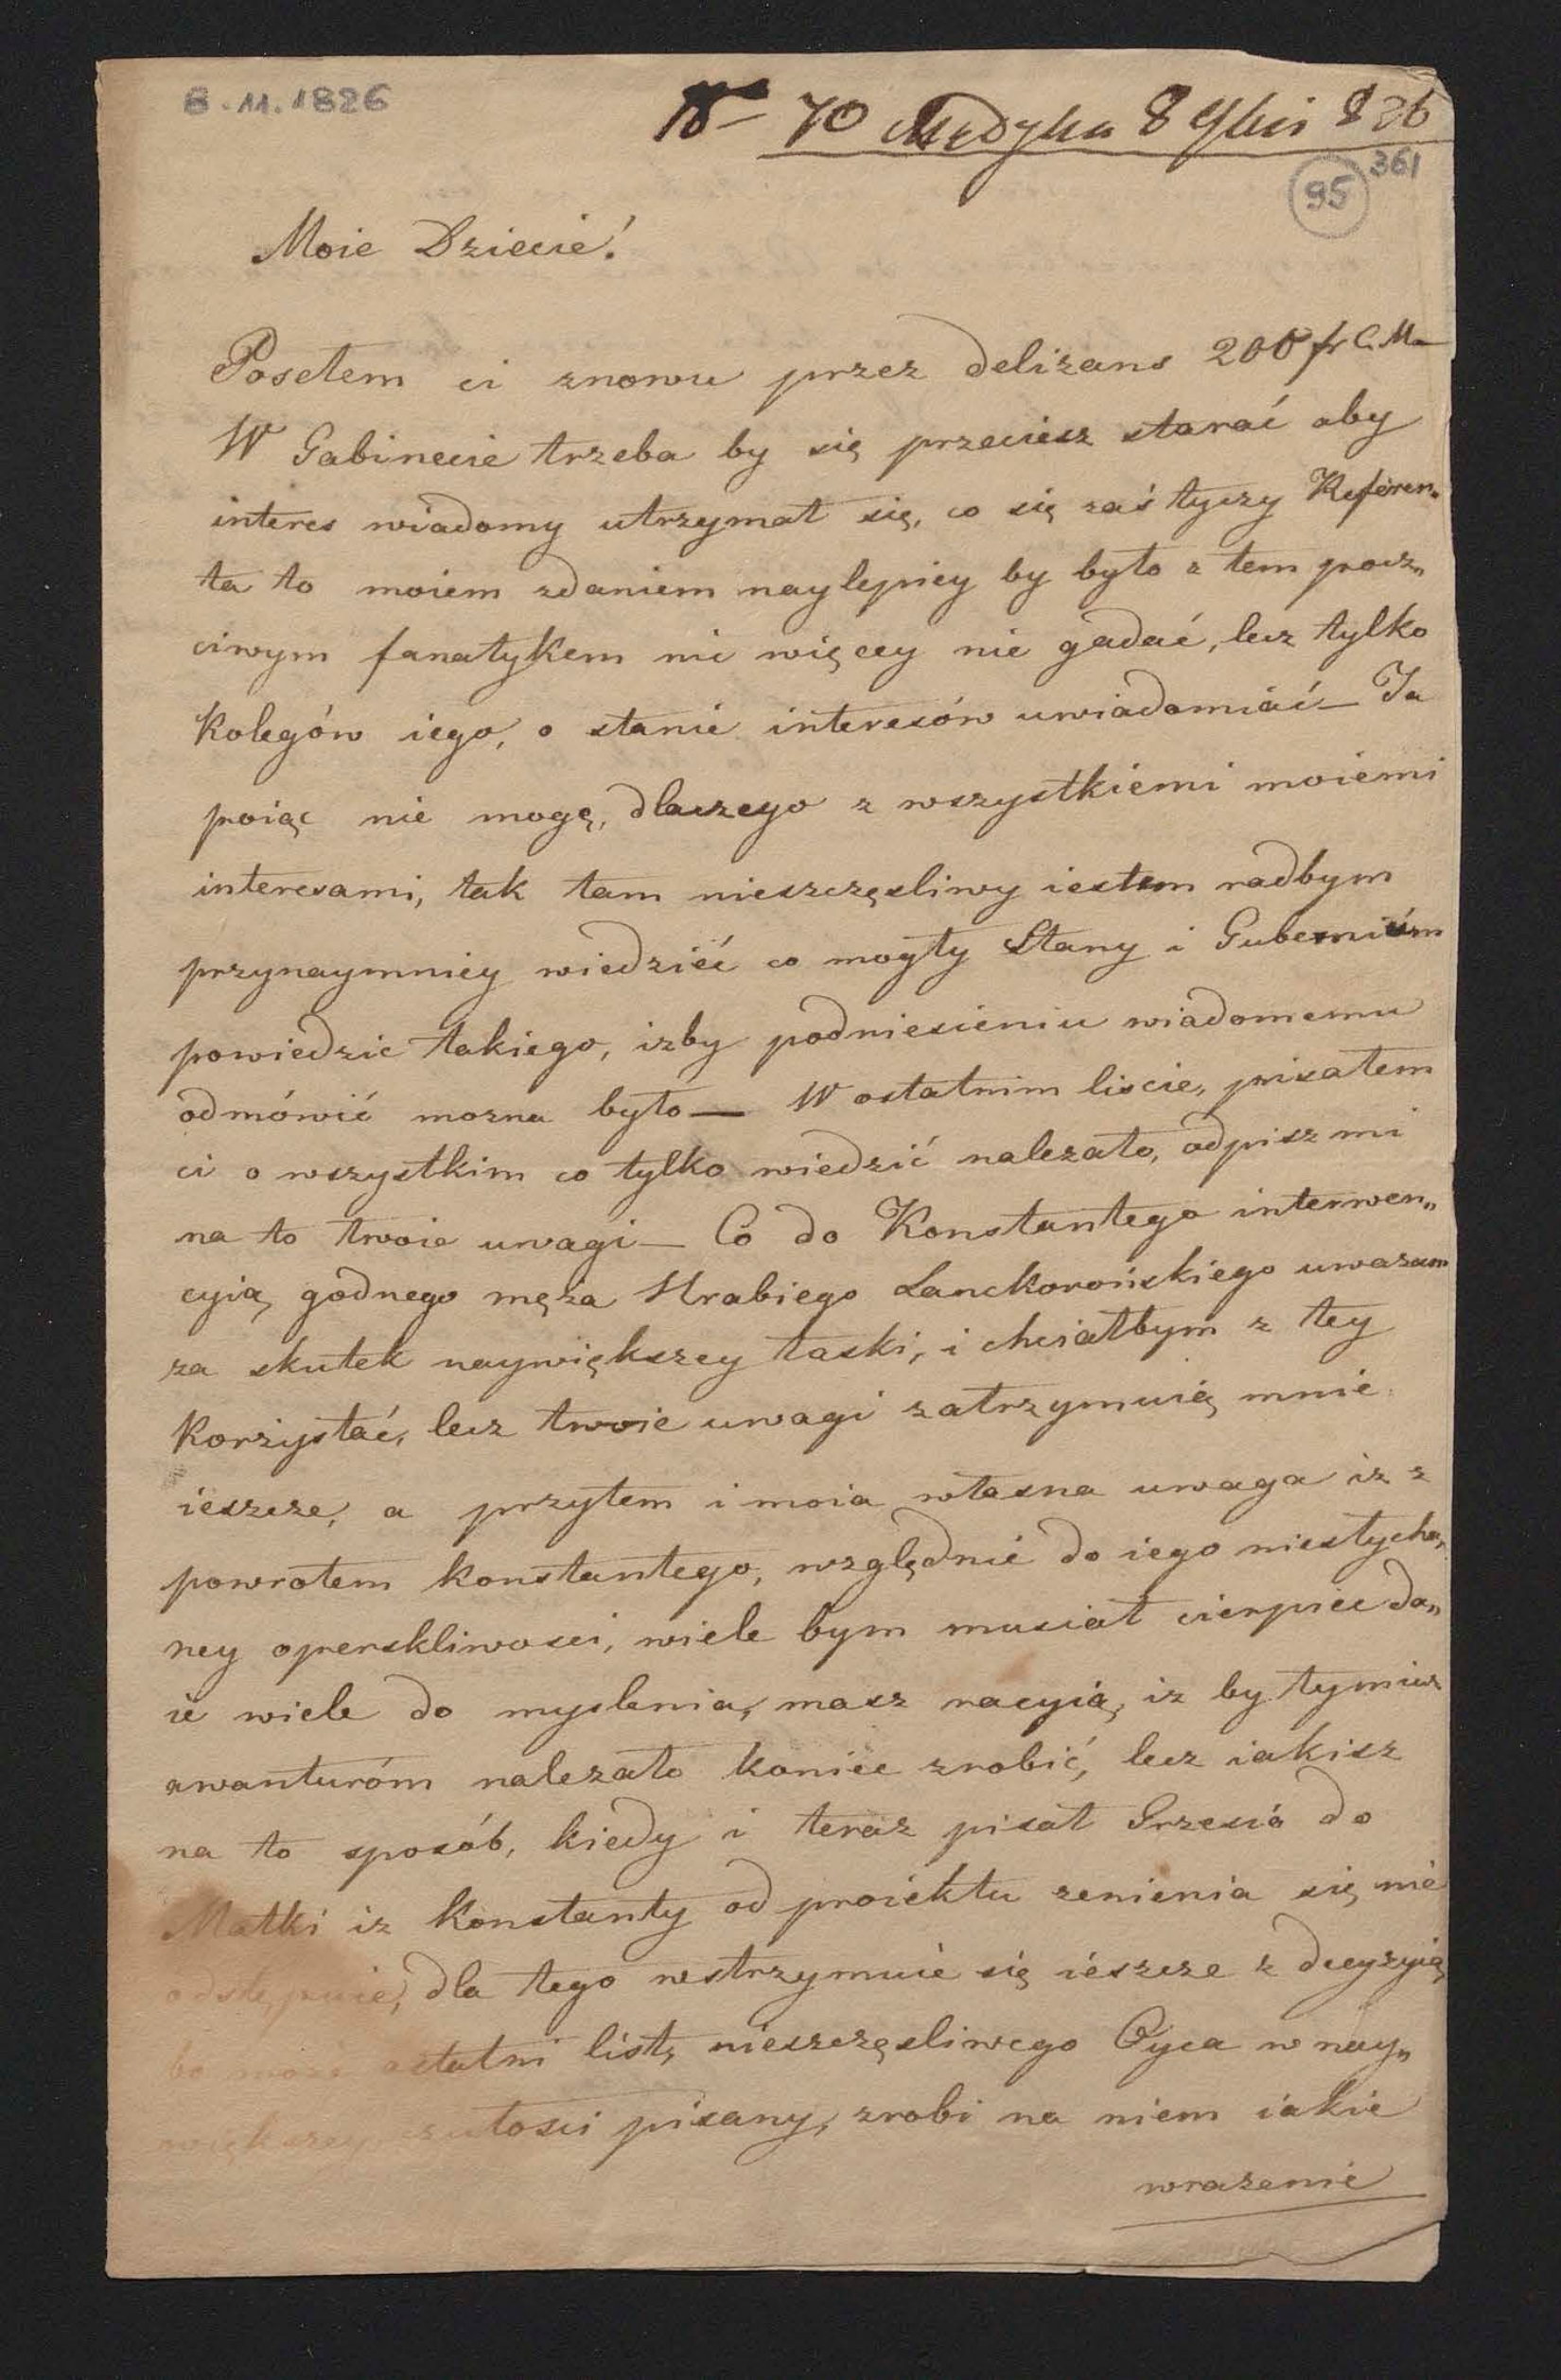 8.11.1826
70 Medyka 8 9bris 826
361
95
Moie Dziecie!
Posełem ci znowu przez delizans 200 fr C. M.
W Gabinecie trzeba by się przeciesz starać aby
interes wiadomy utrzymał się, co się zaś tyczy Referen„
ta to moiem zdaniem naylepiey by było z tem pocz„
ciwym fanatykem nic więcey nie gadać, lecz tylko
kolegów iego, o stanie interesów uwiadomiać — Ja
poiąc nie mogę, dlaczego z wszystkiemi moiemi
interesami, tak tam nieszczęsliwy iestem radbym
przynaymniey wiedzieć co mogły Stany i Gubernium
powiedzic takiego, izby podniesieniu wiadomemu
odmówić mozna było — W ostatnim liscie, pisałem
ci o wszystkim co tylko wiedzić nalezało, odpisz mi
na to twoie uwagi — Co do Konstantego interwen„
cyią godnego męża Hrabiego Lanckorońskiego uwazam
za skutek naywiększey łaski, i chciałbym z tey
korzystać, lecz twoie uwagi zatrzymuią mnie
ieszcze, a przytem i moia własna uwaga iz z
powrotem konstantego, względnie do iego niesłycha„
ney operskliwosci, wiele bym musiał cierpiec da„
ie wiele do myslenia, masz racyią, iz by tymiusz
awanturóm nalezało koniec zrobić, lecz iakisz
na to sposób, kiedy i teraz pisał Grzesió do
Matki iz Konstanty od proiektu zenienia się nie
odstępuie, dla tego wstrzymuie się ieszcze z decyzyią
bo moze ostatni list, nieszczęsliwego Oyca w nay„
większey czułosci pisany, zrobi na niem iakie
wrazenie